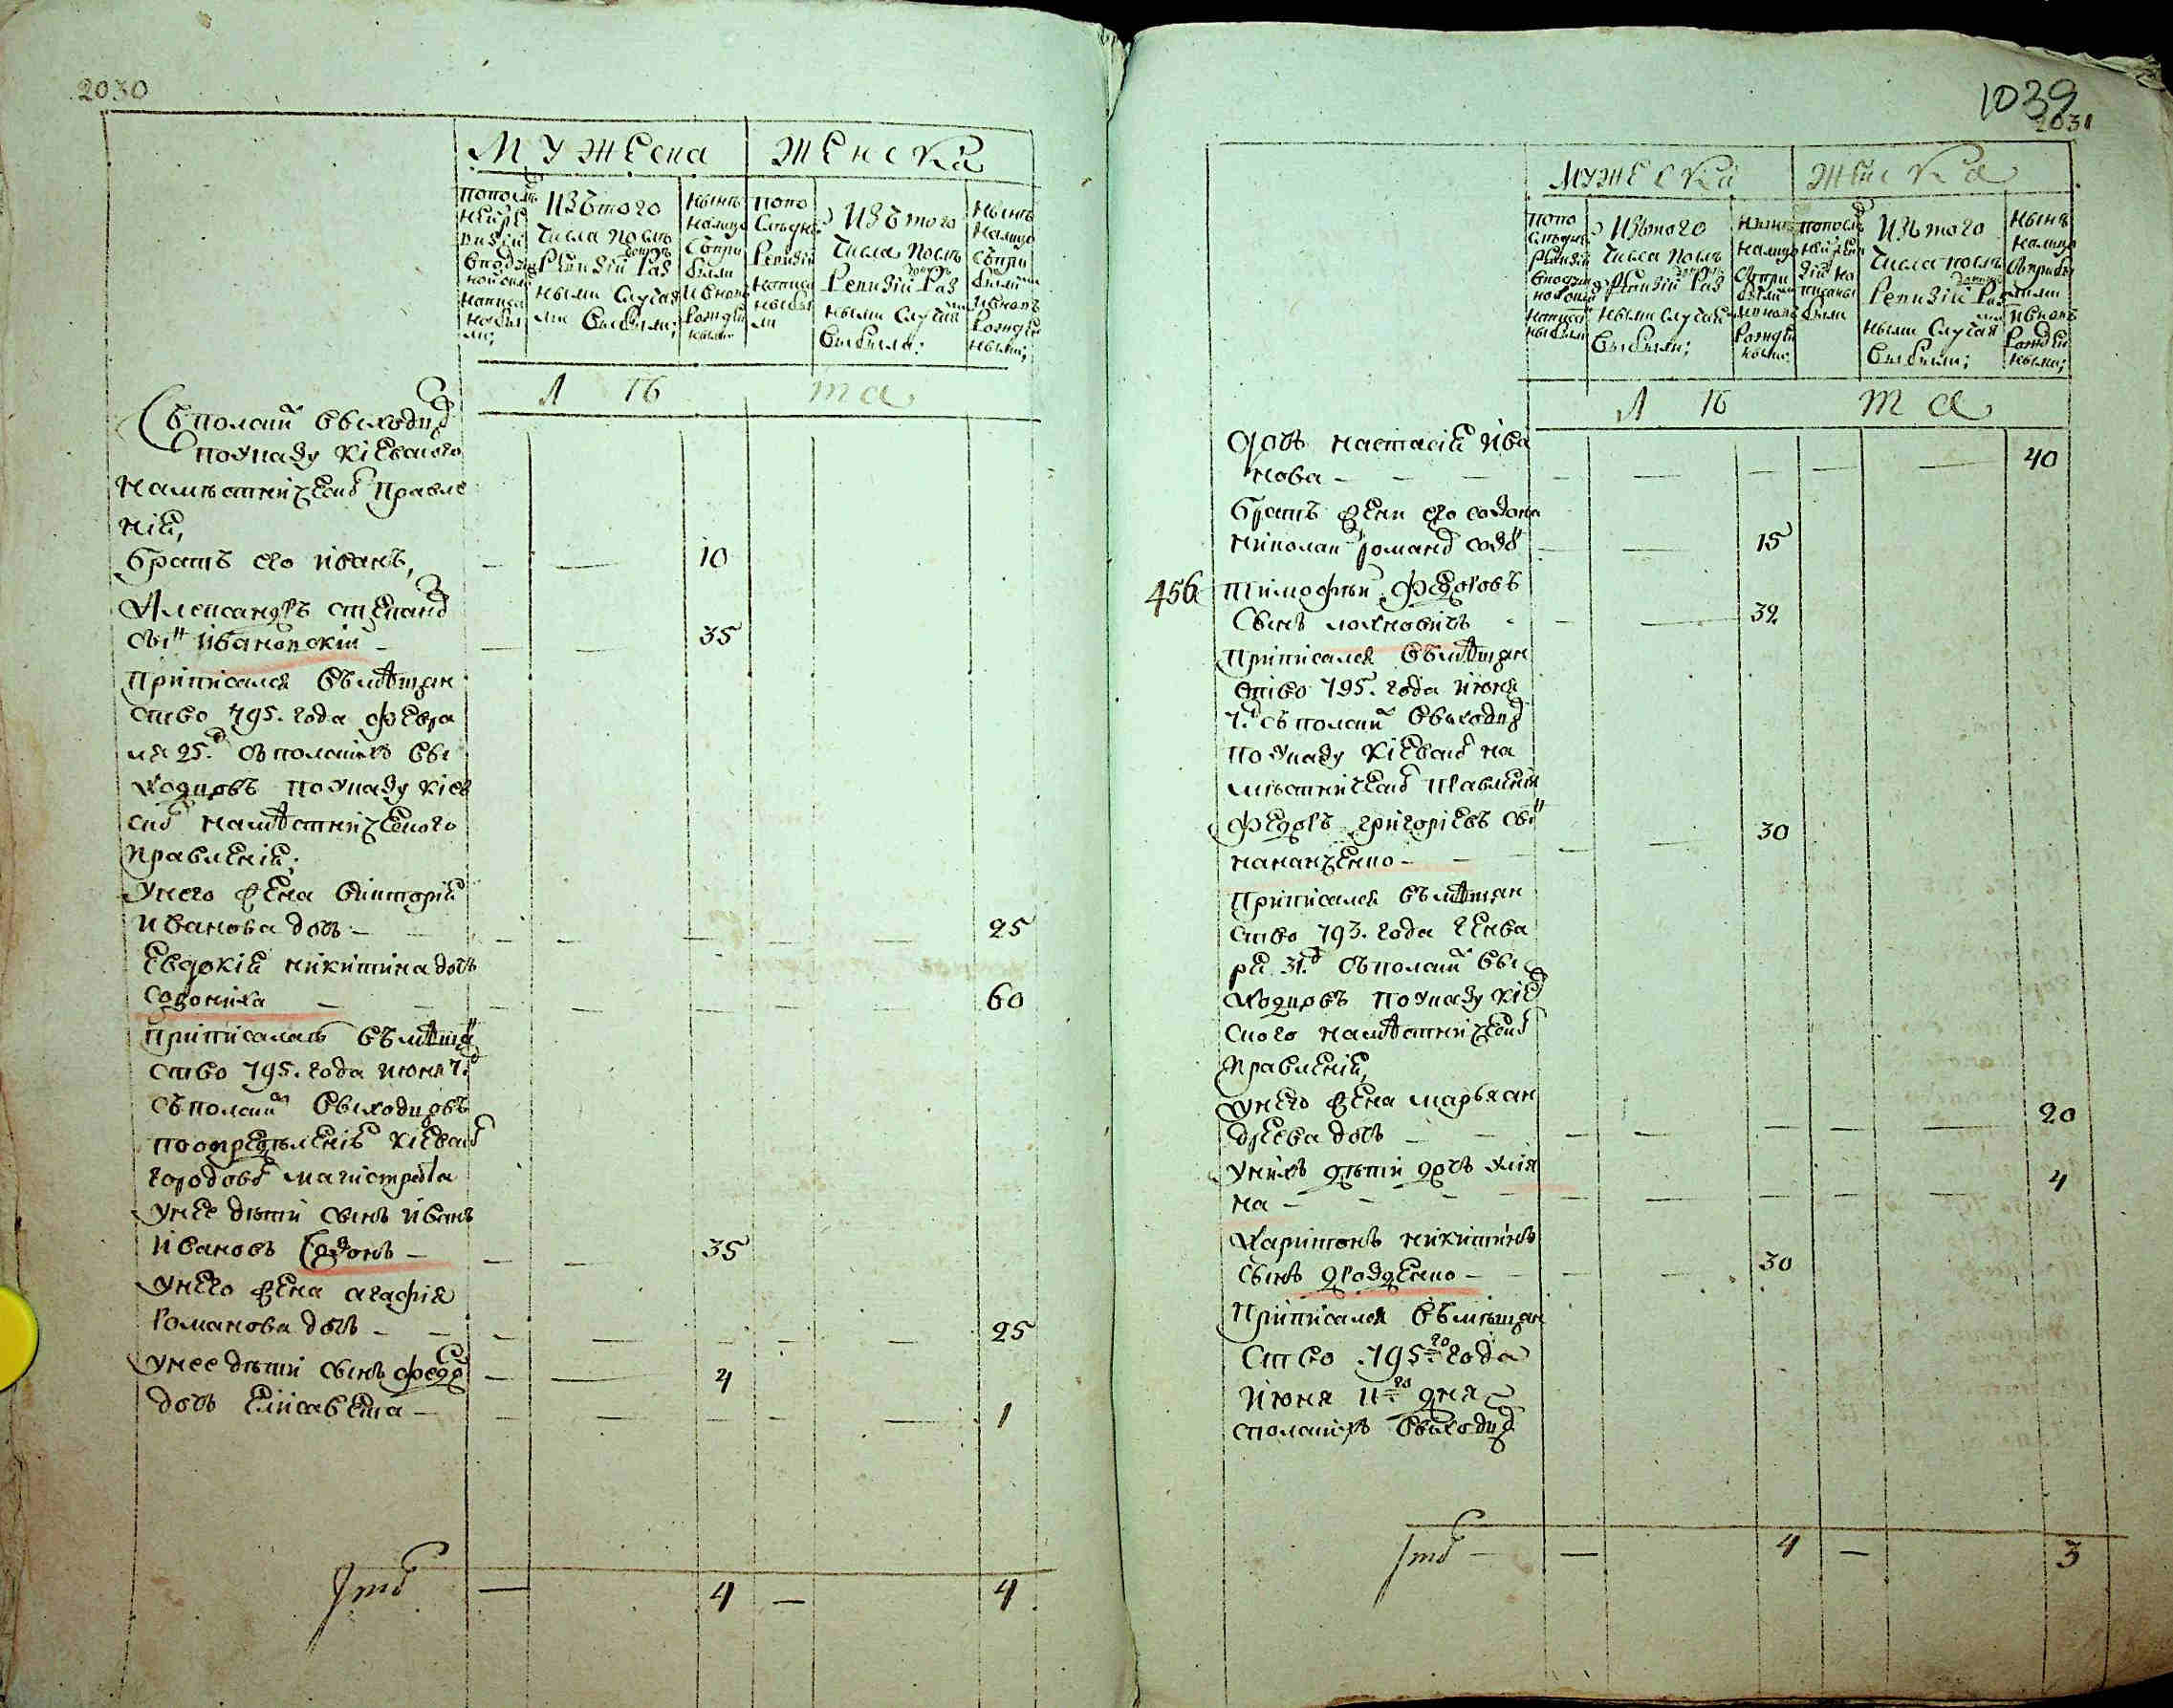 2030
Мужеска Женска
попослѣ
ней ре
визіи
Изъ того
числа послѣ
Ревизіи раз
ными случая
ми выбыли;
нынѣ
налицо
съ при
были
и вновь
рожден
ными
попо
слѣдне
Ревизіи
написа
ны бы
ли
Изъ того
числа послѣ
Ревизіи раз
ными случая
выбыло;
нынѣ
налицо
съ при
были
и вновь
рожден
ными;
лѣ та
Съ полски выходцо
по указу кіевского
намѣстническо правле
нія,
братъ его иванъ, 10
Александръ степано
сынъ Ивановскій 35
приписался въ мѣщан
ство 795. года февра
ля 25. съ полскихъ вы
ходцовъ по указу кіев
ско намѣстнического
правленія;
у него жена викторія
иванова дочь 25
Евдокія никитина дочь
созониха 60
приписалась въ мѣщан
ство 795. года июня 7.
съ полски выходцовъ
по определенію кіевско
городово магистрата
у нее дѣти сынъ иванъ
ивановъ Созонъ 35
у него жена агафія
романова дочь 25
у нее дѣти сынъ федо 4
дочь Елисавета 1
Ито 4 4
1039
2031
Мужеска Женска
Изъ того
числа послѣ
Ревизіи раз
ными случая
выбыли;
нынѣ
налицо
съ при
были
и вновь
рожден
ными
Изъ того
числа послѣ
Ревизіи раз
ными случая
выбыли;
нынѣ
налицо
съ прибы
лыми
и вновь
рожден
ными;
лѣ та
дочь настасія ива
нова 40
братъ жени его созона
николаи романо созо 15
456. Тимофѣй федоровъ
сынъ лохновичъ 32
приписался въ мѣщан
ство 795. года июня
7. съ полски выходцо
по указу кіевско на
мѣстническо правленія
федоръ григоріевъ сынъ
наначенко 30
приписался въ мѣщан
ство 793. года генва
ря 31. съ полски вы
ходцовъ по указу кіев
ского намѣстническо
правленія,
у него жена марья ан
дреева дочь 20
у нихъ дѣти дочь улія
на 4
Харитонъ никитинъ
сынъ дрозденко 30
приписался въ мѣщан
ство 795го года
июня 11го дня
с полскихъ выходцо
Ито 4 3